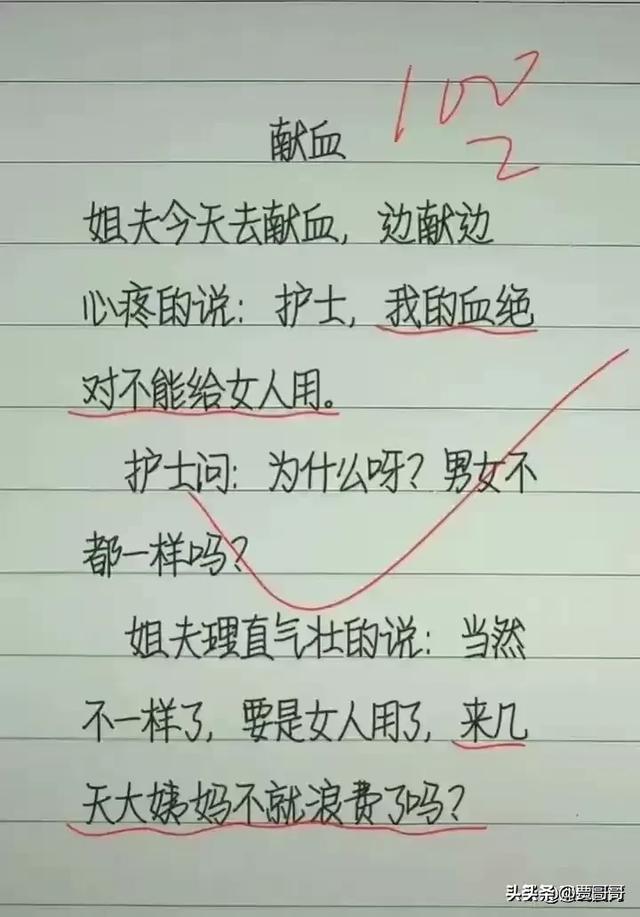 100
献血
姐夫今天去献血，边献边
心疼的说：护士，我的血绝
对不能给女人用。
护士问：为什么呀？男女不
都一样吗？
姐夫理直气壮的说：当然
不一样了，要是女人用了，来几
天大姨妈不就浪费了吗？
头条@贾哥哥